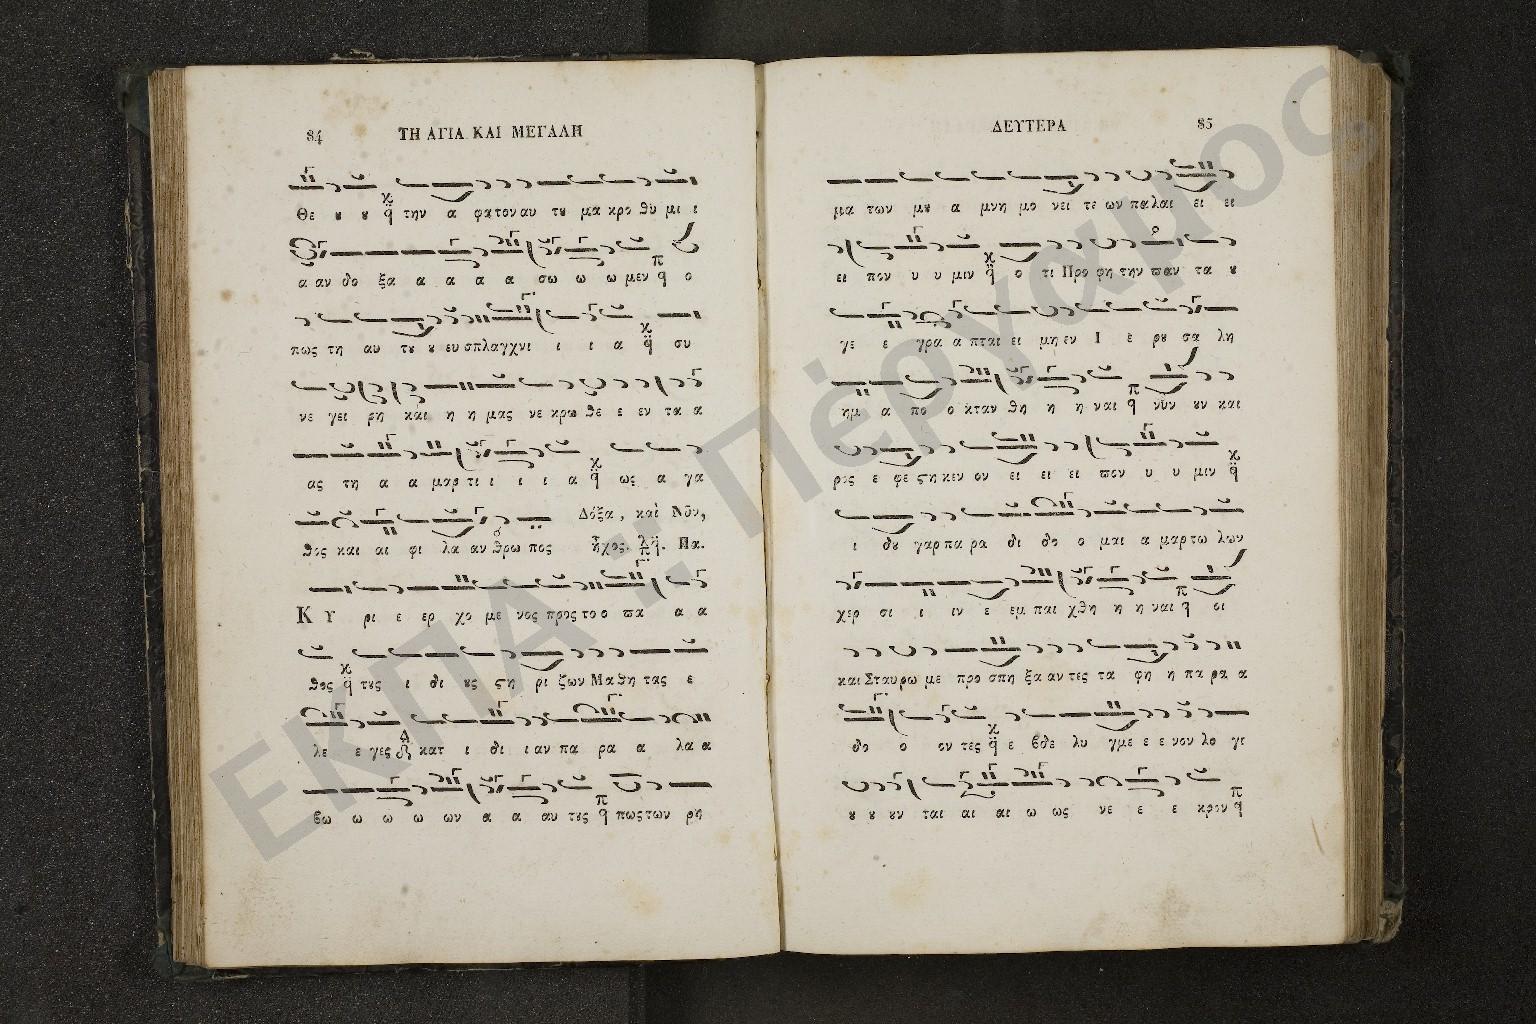 84 ΤΗ ΑΓΙΑ ΚΑΙ ΜΕΓΑΛΗ
Θε ȣ ȣ την α φατον αυ τȣ μα κρο θυ μι ι
α αν δο ξα α α α α σω ω ω μεν ο
πως τη αυ τȣ ȣ ευ σπλαγχνι ι ι α συ
νε γει ρη και η η μας νε κρω θε ε εν τα α
ας τη α α μαρ τι ι ι ι α ως α γα
θος και αι φι λα αν θρω πος Δόξα, καὶ Νῦν,
ἦχος Πα.
Κ Υ ρι ε ερ χο με νος προς το ο πα α α
θος τȣς ι δι ȣς ϛη ρι ζων Μα θη τας ε
λε ε γες κατ ι δι ι αν πα ρα α λα α
βω ω ω ω ων α α αυ τȣς πως των ρη
ΔΕΥΤΕΡΑ 85
μα των μȣ α μνη μο νει τε ων παλαι ει ει
ει πον υ υ μιν ο τι Προ φη την παν τα ȣ
γε ε γρα α πται ει μη εν Ι ε ρȣ σα λη
ημ α πο ο κταν θη η η ναι νῦν ȣν και
ρος ε φε ϛη κεν ον ει ει ει πον υ υ μιν
ι δȣ γαρ πα ρα δι δο ο μαι α μαρτω λων
χερ σι ι ιν ε εμ παι χθη η η ναι οι
και Σταυρω με προ σπη ξα αν τες τα φη η πα ρα α
δο ο ον τες ε βδε λυ γμε ε ε νον λο γι
ȣ ȣ ȣν ται αι αι ω ως νε ε ε κρον
ΕΚΠΑ : Πέργαμος